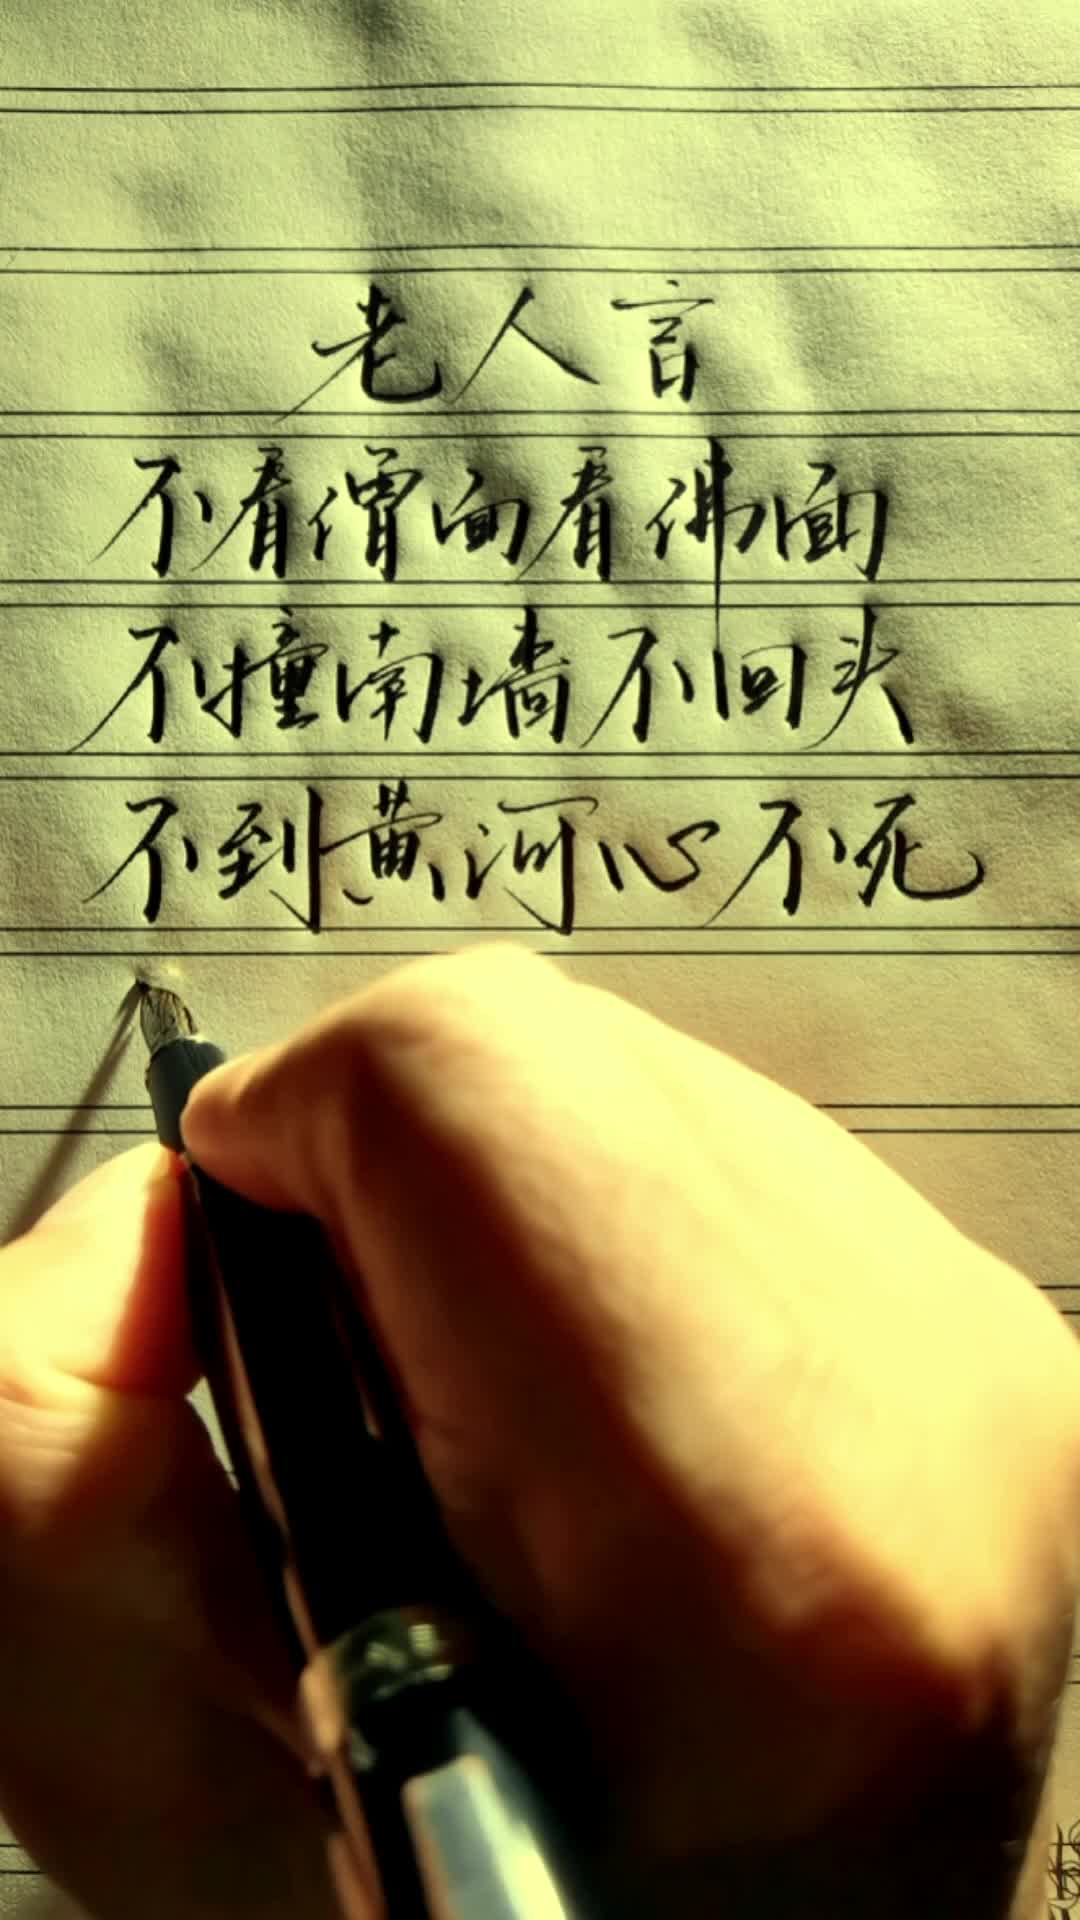 老人言
不看僧面看佛面
不撞南墙不回头
不到黄河心不死